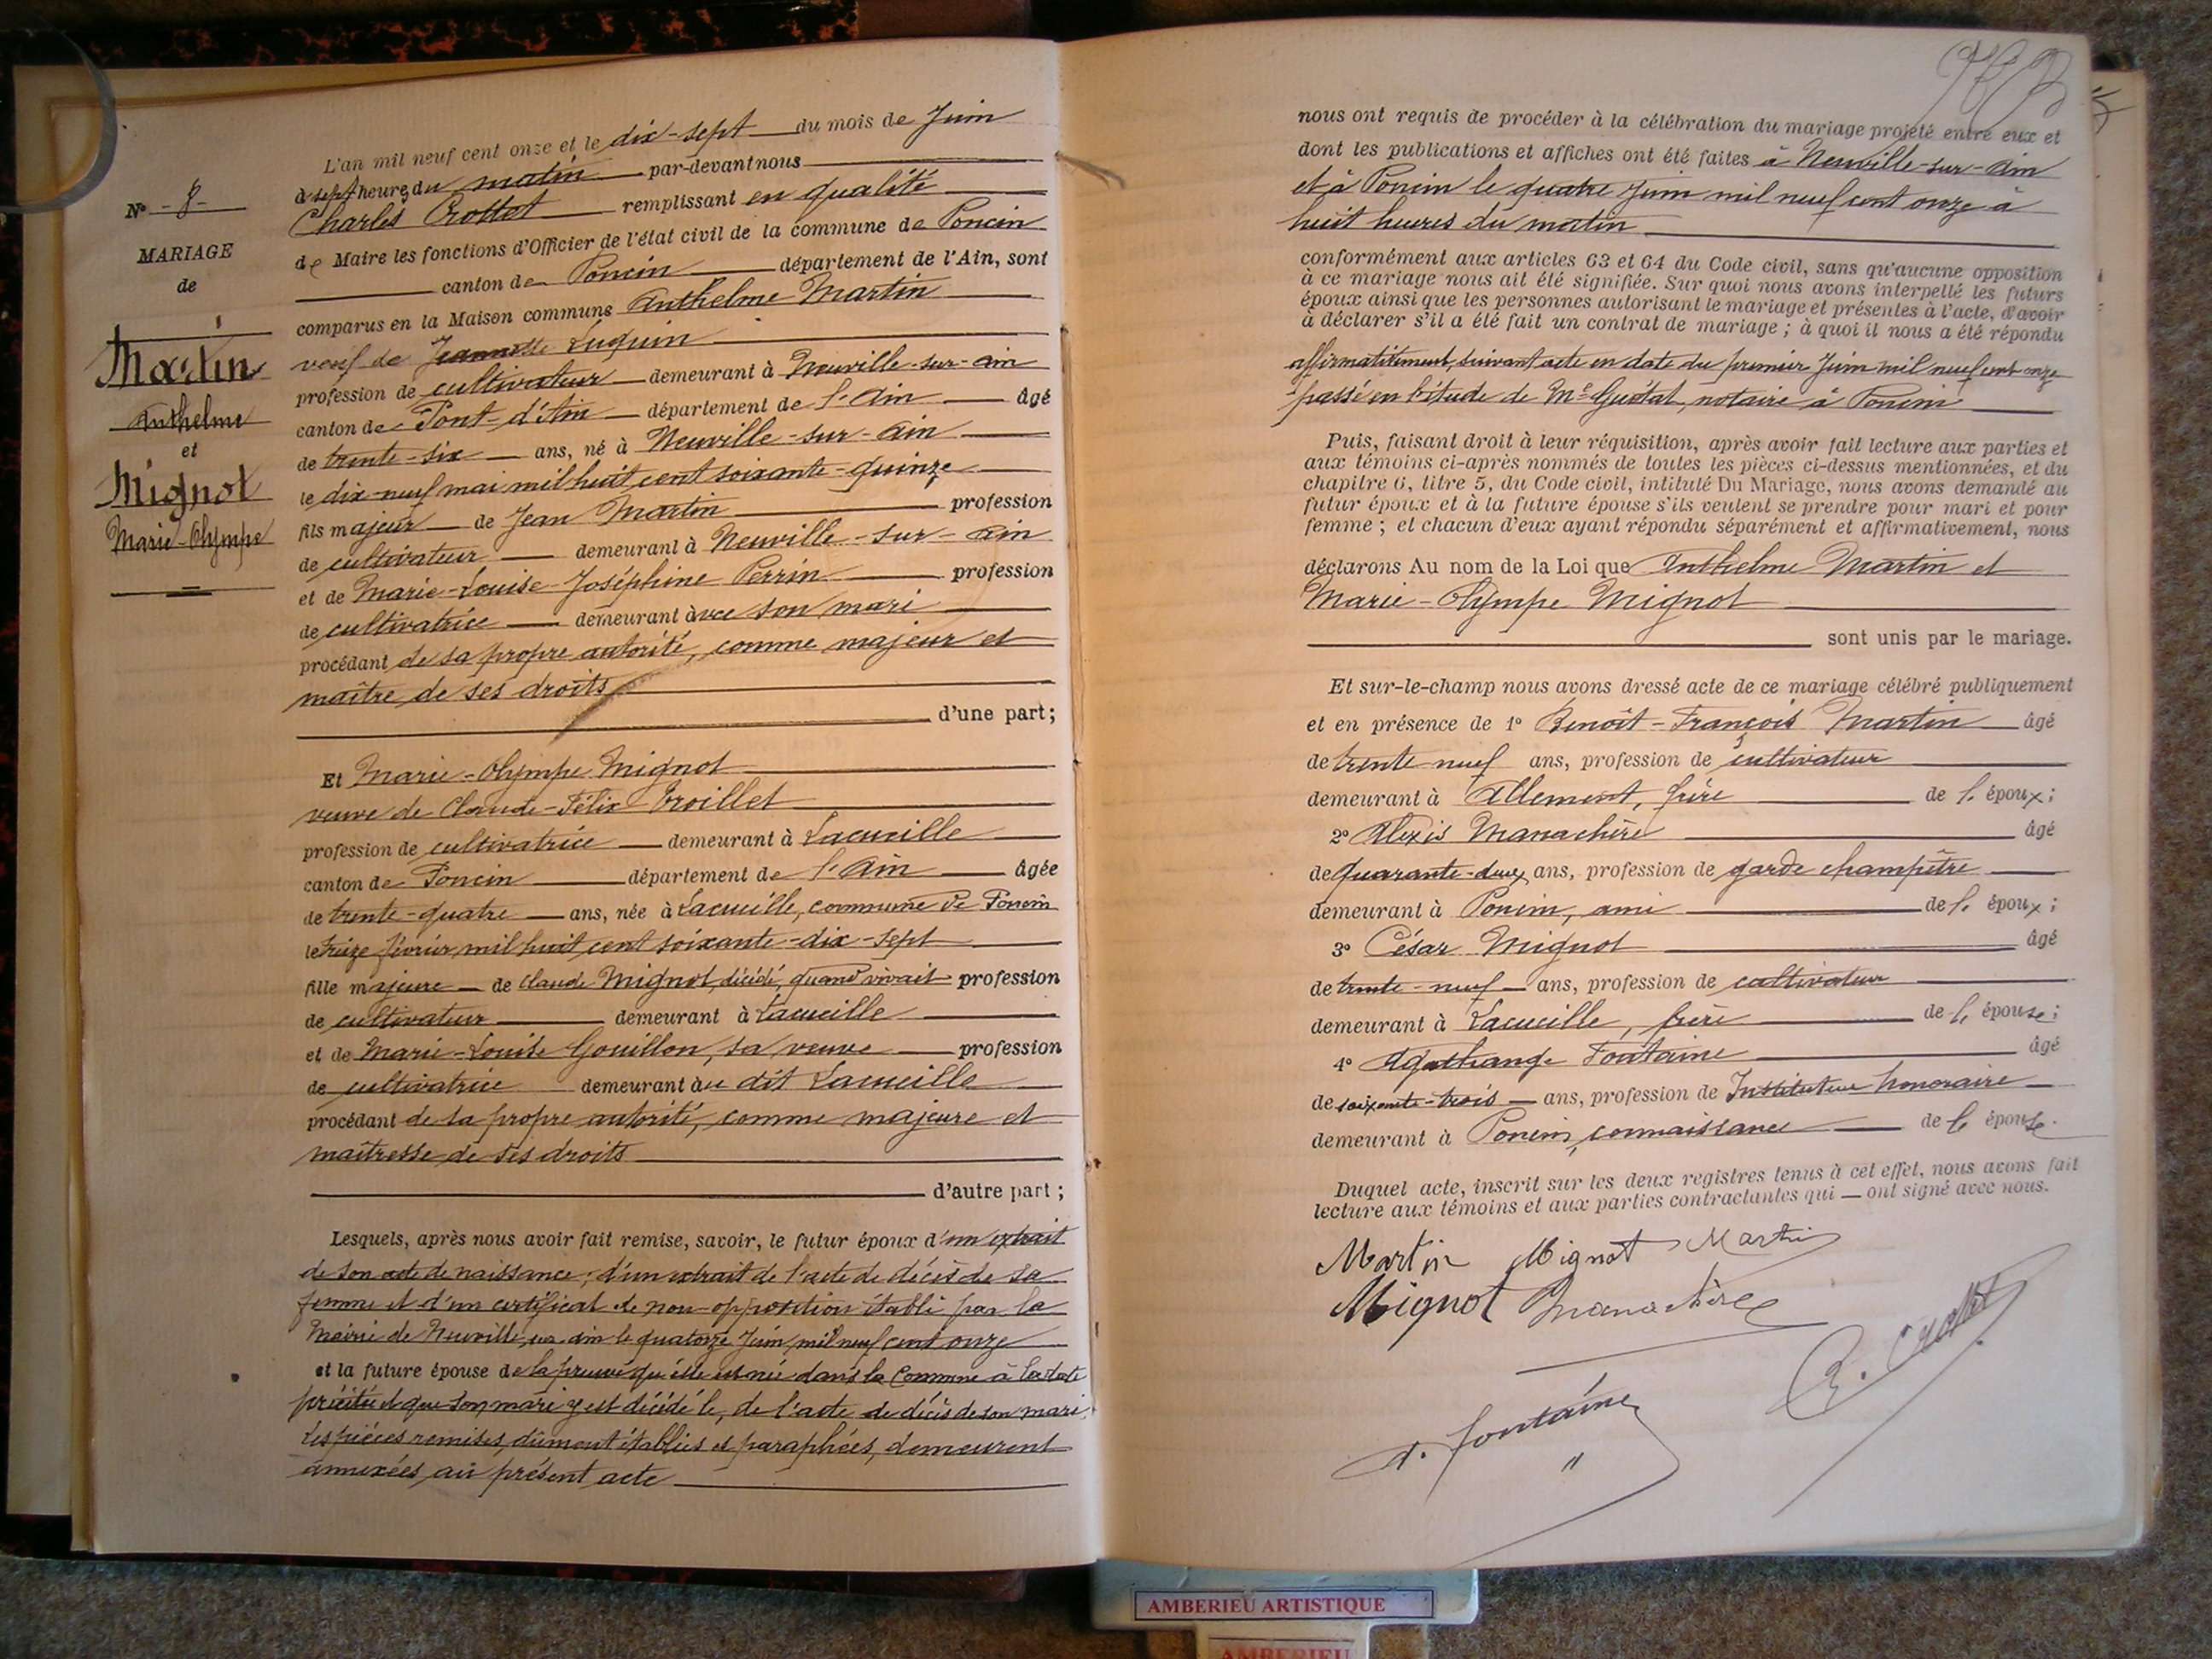 N° - 8 -
MARIAGE
de
Martin
Anthelme
et
Mignot
Marie-Olympe
L'an mil neuf cent onze et le dix-sept du mois de Juin
à sept heures du matin par-devant nous
Charles Crottet remplissant en qualité
de Maire les fonctions d'Officier de l'état civil de la commune de Poncin
canton de Poncin département de l'Ain, sont
comparus en la Maison commune Anthelme Martin
veuf de Jeannette Luquin
profession de cultivateur demeurant à Neuville-sur-Ain
canton de Pont-d'Ain département de l'Ain âgé
de trente-six ans, né à Neuville-sur-Ain
le dix-neuf mai mil huit cent soixante-quinze
fils majeur de Jean Martin profession
de cultivateur demeurant à Neuville-sur-Ain
et de Marie-Louise-Joséphine Perrin profession
de cultivatrice demeurant avec son mari
procédant de sa propre autorité, comme majeur et
maître de ses droits
d'une part;
Et Marie-Olympe Mignot
veuve de Claude-Félix Troillet
profession de cultivatrice demeurant à Lacueille
canton de Poncin département de l'Ain âgée
de trente-quatre ans, née à Lacueille, commune de Poncin
le treize février mil huit cent soixante-dix-sept
fille majeure de Claude Mignot, décédé, quand vivait profession
de cultivateur demeurant à Lacueille
et de Marie-Louise Gouillon, sa veuve profession
de cultivatrice demeurant au dit Lacueille
procédant de sa propre autorité, comme majeure et
maîtresse de ses droits
d'autre part;
Lesquels, après nous avoir fait remise, savoir, le futur époux d'un extrait
de son acte de naissance; d'un extrait de l'acte de décès de sa
femme et d'un certificat de non-opposition établi par la
Mairie de Neuville sur Ain le quatorze Juin mil neuf cent onze
et la future épouse de la preuve qu'elle est née dans la Commune à la date
précitée et que son mari y est décédé le, de l'acte de décès de son mari.
Les pièces remises, dûment établies et paraphées, demeurent
annexées au présent acte
nous ont requis de procéder à la célébration du mariage projeté entre eux et
dont les publications et affiches ont été faites à Neuville-sur-Ain
et à Poncin le quatre Juin mil neuf cent onze à
huit heures du matin
conformément aux articles 63 et 64 du Code civil, sans qu'aucune opposition
à ce mariage nous ait été signifiée. Sur quoi nous avons interpellé les futurs
époux ainsi que les personnes autorisant le mariage et présentes à l'acte, d'avoir
à déclarer s'il a été fait un contrat de mariage ; à quoi il nous a été répondu
affirmativement, suivant acte en date du premier Juin mil neuf cent onze
passé en l'étude de Me Guétat, notaire à Poncin
Puis, faisant droit à leur réquisition, après avoir fait lecture aux parties et
aux témoins ci-après nommés de toutes les pièces ci-dessus mentionnées, et du
chapitre 6, titre 5, du Code civil, intitulé Du Mariage, nous avons demandé au
futur époux et à la future épouse s'ils veulent se prendre pour mari et pour
femme ; et chacun d'eux ayant répondu séparément et affirmativement, nous
déclarons Au nom de la Loi que Anthelme Martin et
Marie-Olympe Mignot
sont unis par le mariage.
Et sur-le-champ nous avons dressé acte de ce mariage célébré publiquement
et en présence de 1° Benoît-François Martin âgé
de trente neuf ans, profession de cultivateur
demeurant à Allement, frère de l'époux;
2° Alexis Manachère âgé
de quarante-deux ans, profession de garde champêtre
demeurant à Poncin, ami de l'époux;
3° César Mignot âgé
de trente-neuf ans, profession de cultivateur
demeurant à Lacueille, frère de l'épouse;
4° Agathange Fontaine âgé
de soixante-trois ans, profession de Instituteur honoraire
demeurant à Poncin, connaissance de l'épouse.
Duquel acte, inscrit sur les deux registres tenus à cet effet, nous avons fait
lecture aux témoins et aux parties contractantes qui ont signé avec nous.
Martin Mignot Martin
Mignot Manachère
C. Crottet
A. Fontaine
AMBERIEU ARTISTIQUE
AMBERIEU